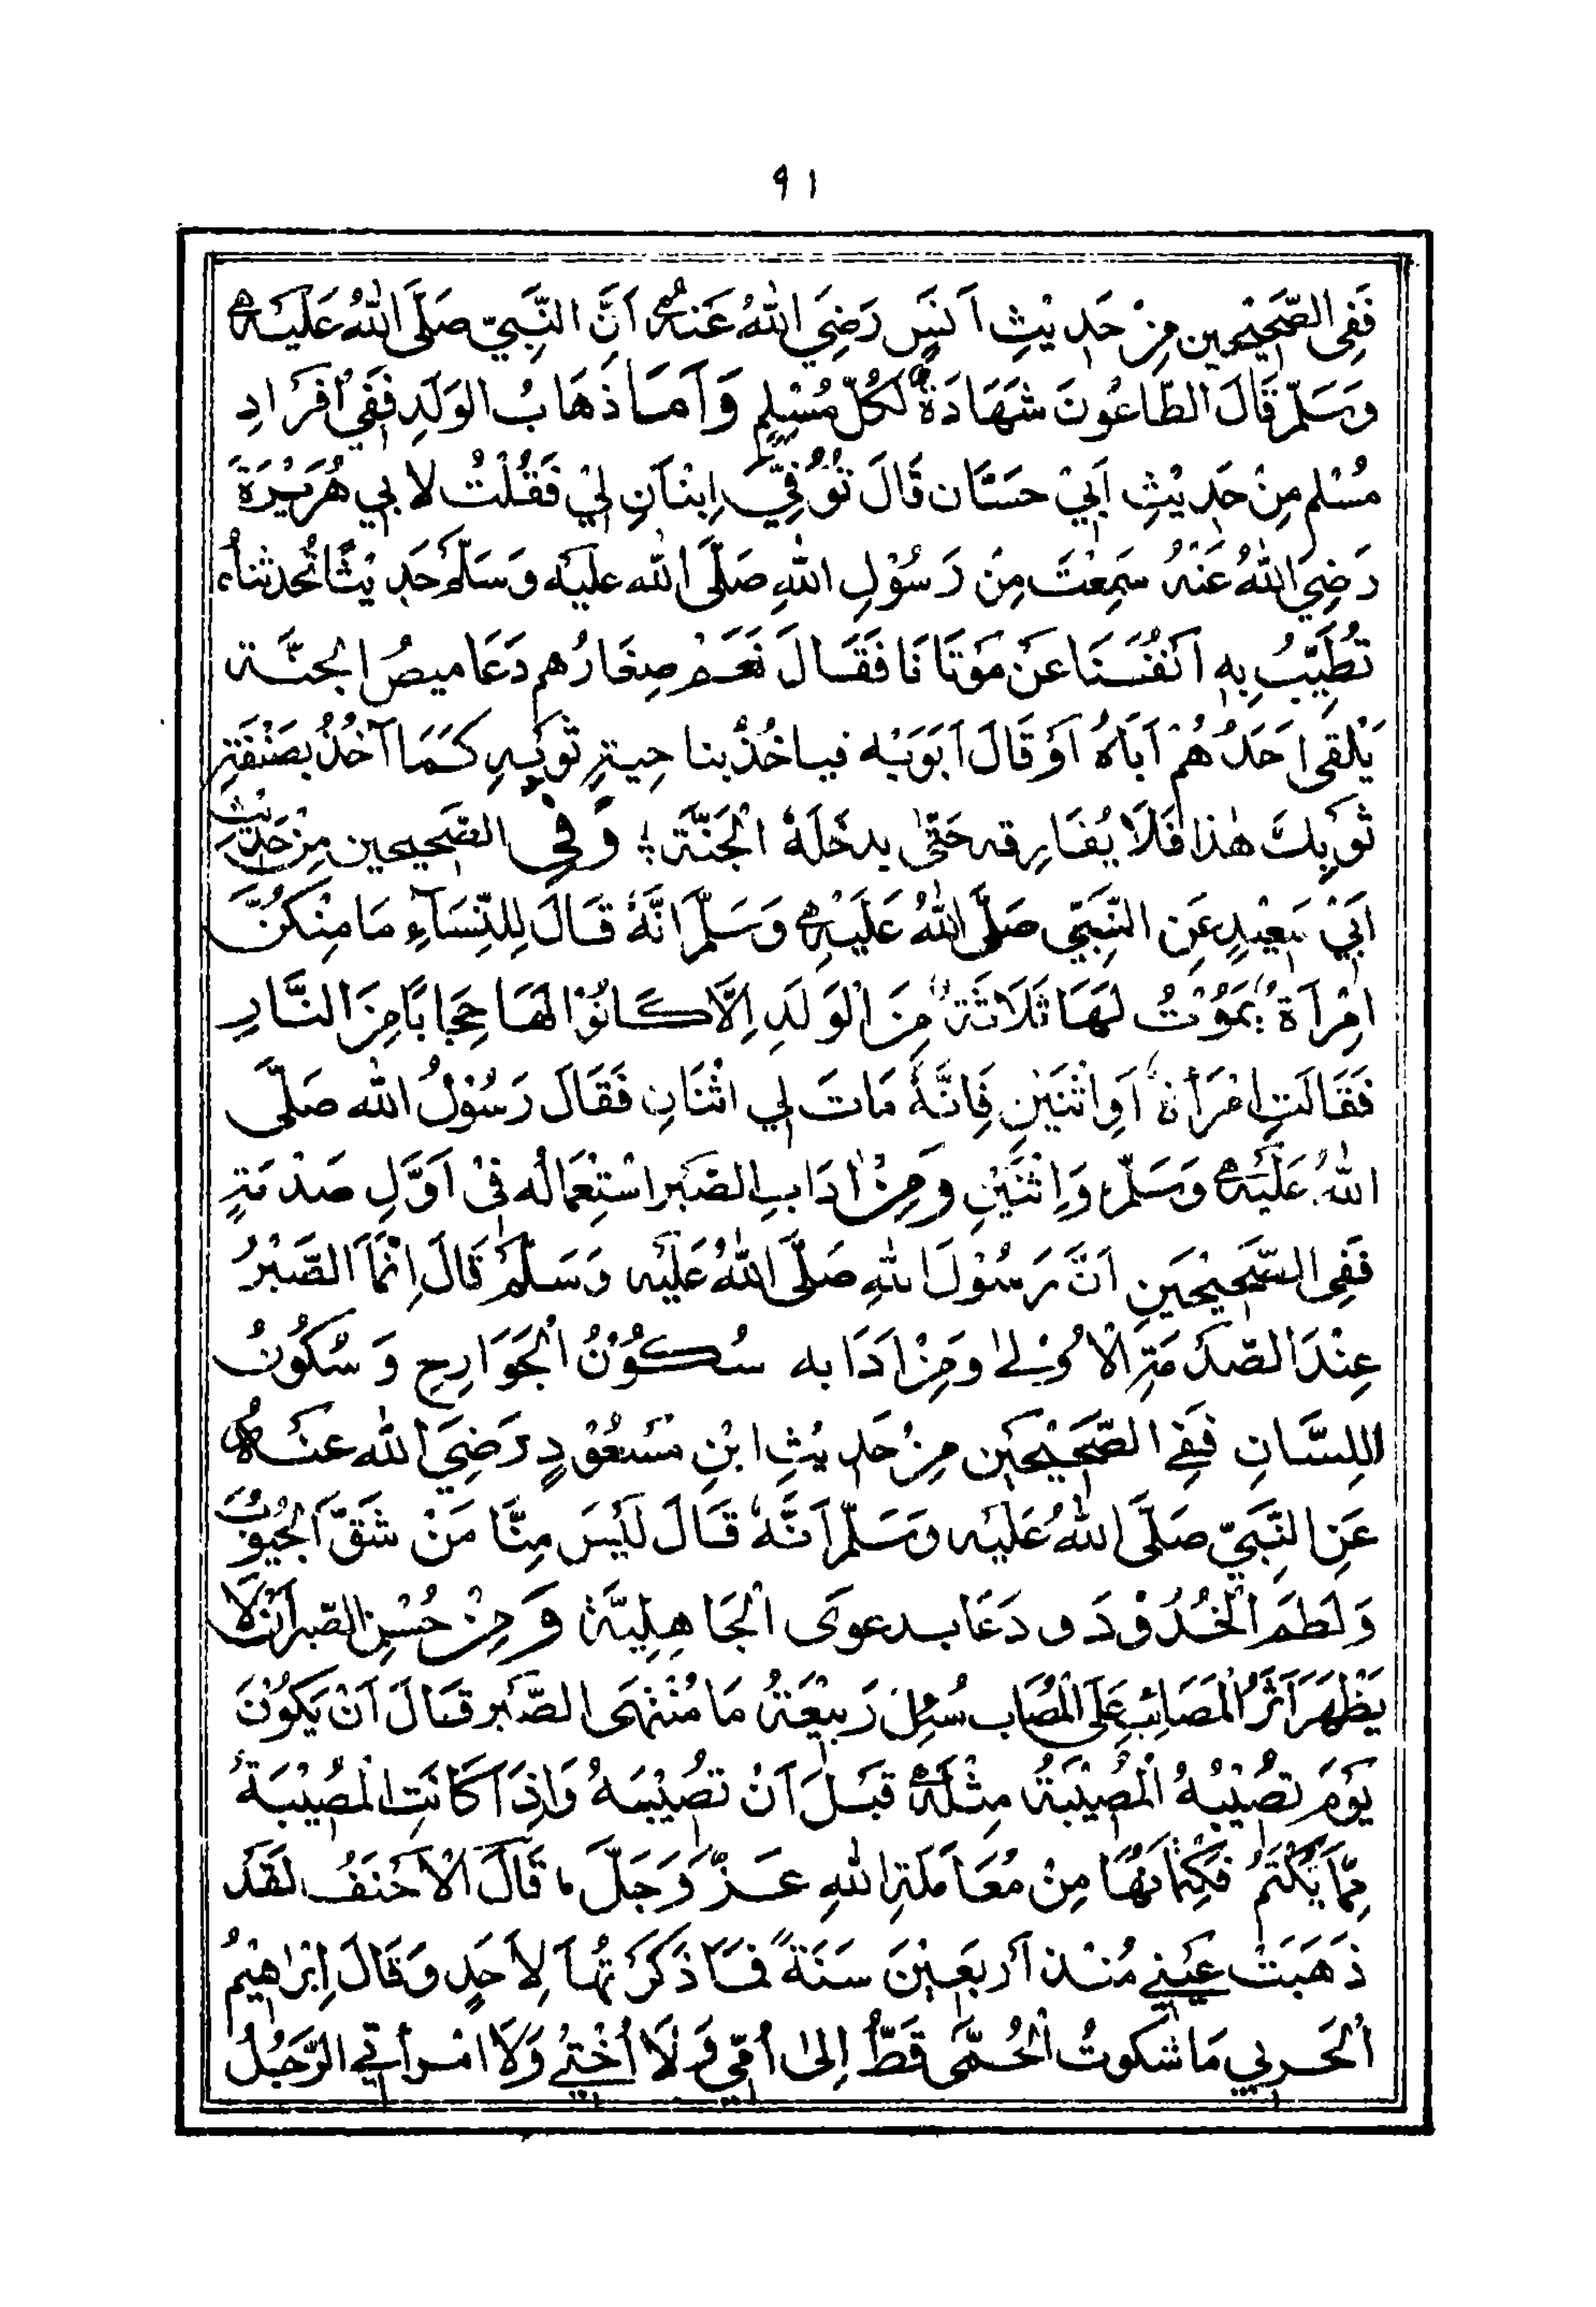 ٩١
فَفِى الصَّحِيْحِين مِنْ حَدِيْثِ اَنَسٍ رَضِيَ اللهُ عَنْهُ اَنَّ النَّبِيّ صَلَّى اللهُ عَلَيْهِ
وَسَلَّمَ قَالَ الطَّاعُونَ شَهَادَةٌ لِكُلِّ مُسْلِمٍ وَاَمَا ذَهَابُ الوَلَدِ فَفِي اَفْرَادِ
مُسْلِم مِنْ حَدِيْثِ اَبِيْ حَسَّان قَالَ تُوُفِّيَ اِبْنَانِ لِيْ فَقُلْتُ لِابِي هُرَيْرَةَ
رَضِيَ اللهُ عَنْهُ سَمِعْتَ مِنْ رَسُوْلِ اللهِ صَلَّى الله عَلَيْه وَسَلَّمَ حَدِيْثًا تُحَدِثُنَاُ،
تُطَيِّبُ بِهِ اَنْفُسَنَا عَنْ مَوْتَانَا فَقَالَ نَعَمْ صِغَارُهم دَعَامِيصُ الجنَّة
يَلْقى اَحَدُهُمْ اَبَاهُ اَوْ قَالَ اَبَوَيْه فياخُذُ بنا حِيةِ ثَوْبِهِ كَمَا آخُذُ بِصَنْفَةِ
ثَوْبِكَ هٰذا فَلَا يُفَارِقه حَتّٰى يدخلَهُ الْجَنَّةَ ؛ وَفِى الصَّحِيحين مِنْ حَدِيْثِ
اَبِيْ سَعِيْدٍ عَنِ النَّبِيِّ صَلَّى اللهُ عَلَيْهِ وَسَلَّمَ اَنَّهُ قَالَ لِلنِّسَآءِ مَا مِنْكُنَّ
امْرَاَةٌ يَمَوْتُ لَهَا ثَلَاثَةٌ مِنَ الْوَلَدِ اِلَّا كَانُوْا لَهَا حِجَابًا مِنَ النَّارِ
فَقَالَتِ امْرَأَةٌ اَوِ اثْنَيْنِ فَاِنَّهُ مَاتَ لِي اثْنَانِ فَقَالَ رَسُوْلُ الله صَلَّى
اللهُ عَلَيْهِ وَسَلَّمَ وَاِثْنَيْنِ وَمِنْ اٰدَابِ الصَّبْرِ اسْتِعْمَالُه فِىْ اَوَّلِ صَدْمَةٍ
فَفِى الصَّحِيْحَيْنِ اَنَّ رَسُوْلَ اللهِ صَلَّى اللهُ عَلَيْه وَسَلَّمَ قَالَ اِنَّمَا الصَّبْرُ
عِنْدَ الصَّدْمَةِ الْاُوْلىٰ وَمِنْ اٰدَابه سُكُوْنُ الْجَوَارِحِ وَ سُكُوْنُ
اللِسَّانِ فَفِي الصَّحِيْحَيْنِ مِنْ حَدِيْثِ ابْنِ مَسْعُوْدٍ رَضِيَ الله عَنْهُ
عَنِ النَّبِيّ صَلَّى اللهُ عَلَيْه وَسَلَّمَ اَنَّهُ قَالَ لَيْسَ مِنَّا مَنْ شَقَّ الْجُيُوْبَ
وَلَطَمَ الْخُدُوْدَ وَ دَعَا بدعوَى الْجَاهِلِيَّةِ وَمِنْ حُسْنِ الصّبرِ اَنْ لَا
يَظْهَرَ اَثَرُ الْمَصَائِبِ عَلَى الْمُصَاب سُئِلَ رَبِيْعَةُ مَا مُنْتَهَى الصَّبْرِ قَالَ اَنْ يَكُوْنَ
يَوْمَ تُصِيْبُهُ الْمُصِيْبَةُ مِثْلَهُ قَبْلَ اَنْ تُصِيْبَهُ وَاِذَا كَانَتِ الْمُصِيْبَةُ
مِمَّا يُكْتَمُ فَكِتْمَانُهَا مِنْ مُعَامَلَةِ اللهِ عَزَّ وَجَلَّ ، قَالَ الْاَحْنَفُ لَقَدْ
ذَهَبَتْ عَيْنِي مُنْذ اَربَعِيْنَ سَنَةً فَمَا ذَكَرْتُهَا لِاَحَدٍ وَقَالَ اِبْرٰهِيْمُ
الْحَربِي مَا شَكوتُ الْحُمَّى قَطُّ اِلىٰ اُمِّي وَ لَا اُخْتِي وَلَا امْرأَتِي الرَّجُلُ